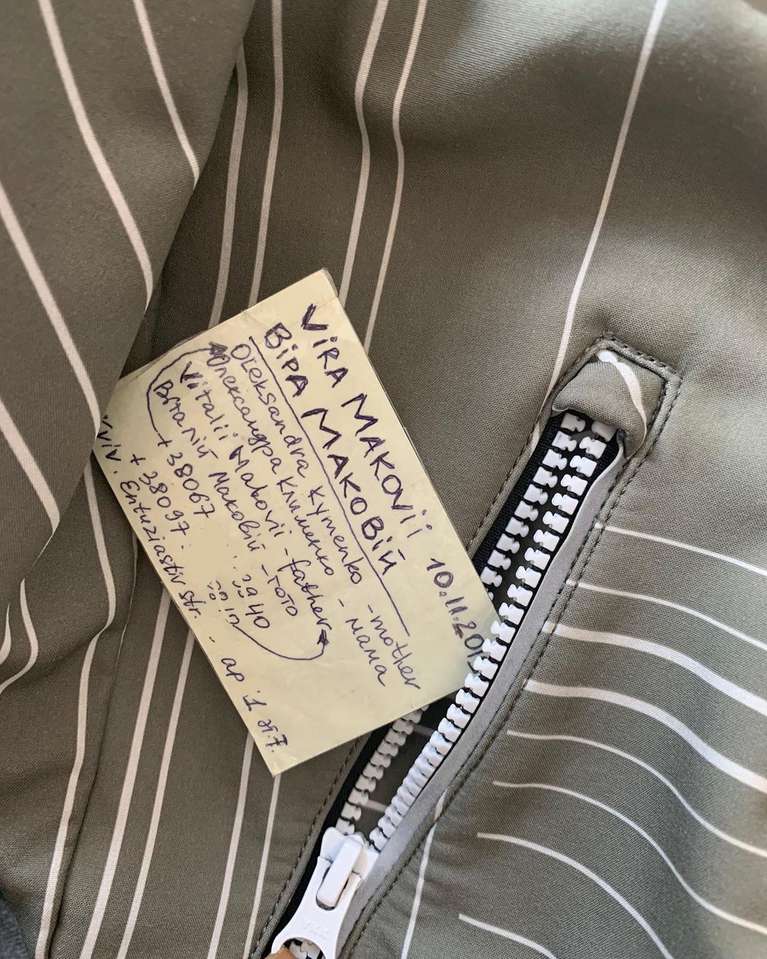 VIRA MAKOVII
ВІРА МАКОВІЙ 10.11.20
Oleksandra Kymenko - mother
Олександра Клименко - мама
Vitalii Makovii - father
Віталій Маковій - тато
+38067 3940
+38097
Kyiv. Entuziastiv str. - ap. 1